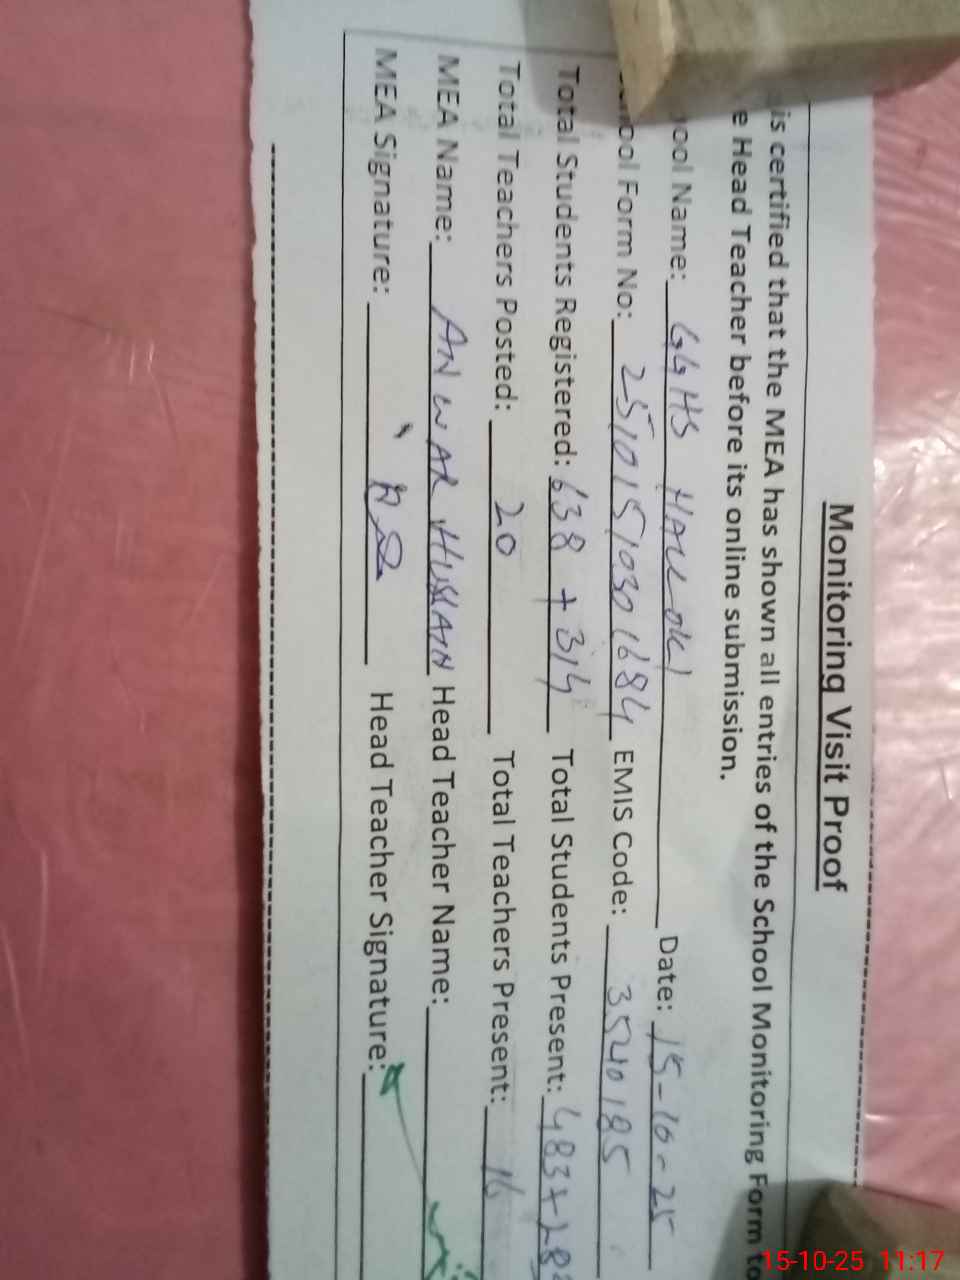 Monitoring Visit Proof
is certified that the MEA has shown all entries of the School Monitoring Form to
e Head Teacher before its online submission.
ool Name: GGHS HALLOKI Date: 15-10-25
ool Form No: 25101510301684 EMIS Code: 3540185
Total Students Registered: 638 + 314 Total Students Present: 483+28
Total Teachers Posted: 20 Total Teachers Present: 16
MEA Name: ANWAR HUSSAIN Head Teacher Name:
MEA Signature: Head Teacher Signature:
15-10-25 11:17